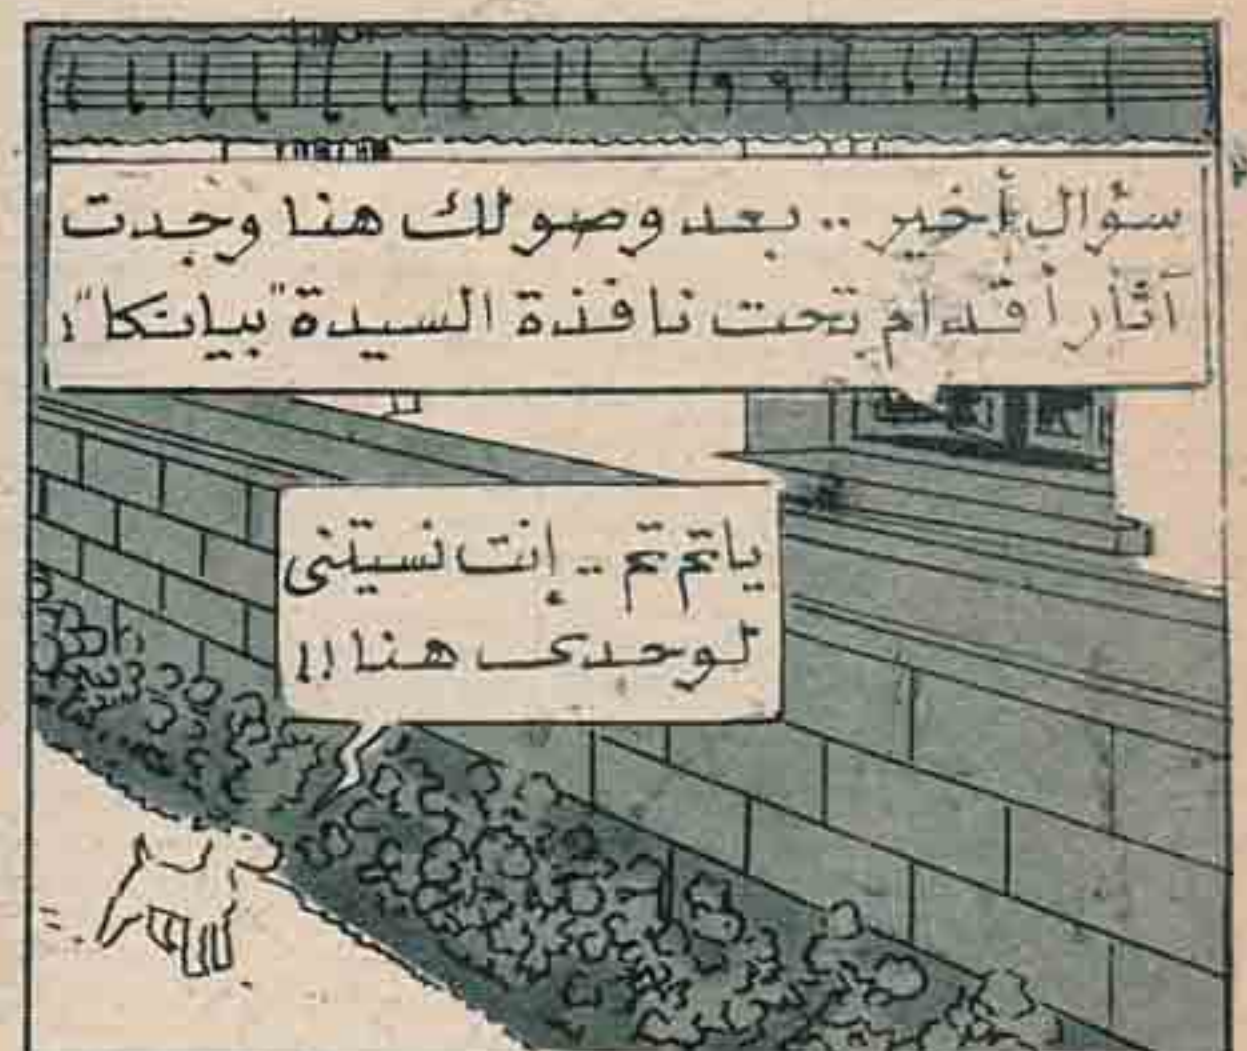 سؤال أخير .. بعد وصولك هنا وجدت
آثار أقدام تحت نافذة السيدة "بيانكا"!
ياتم تم .. إنت نسيتنى
لوحدى هنا!!